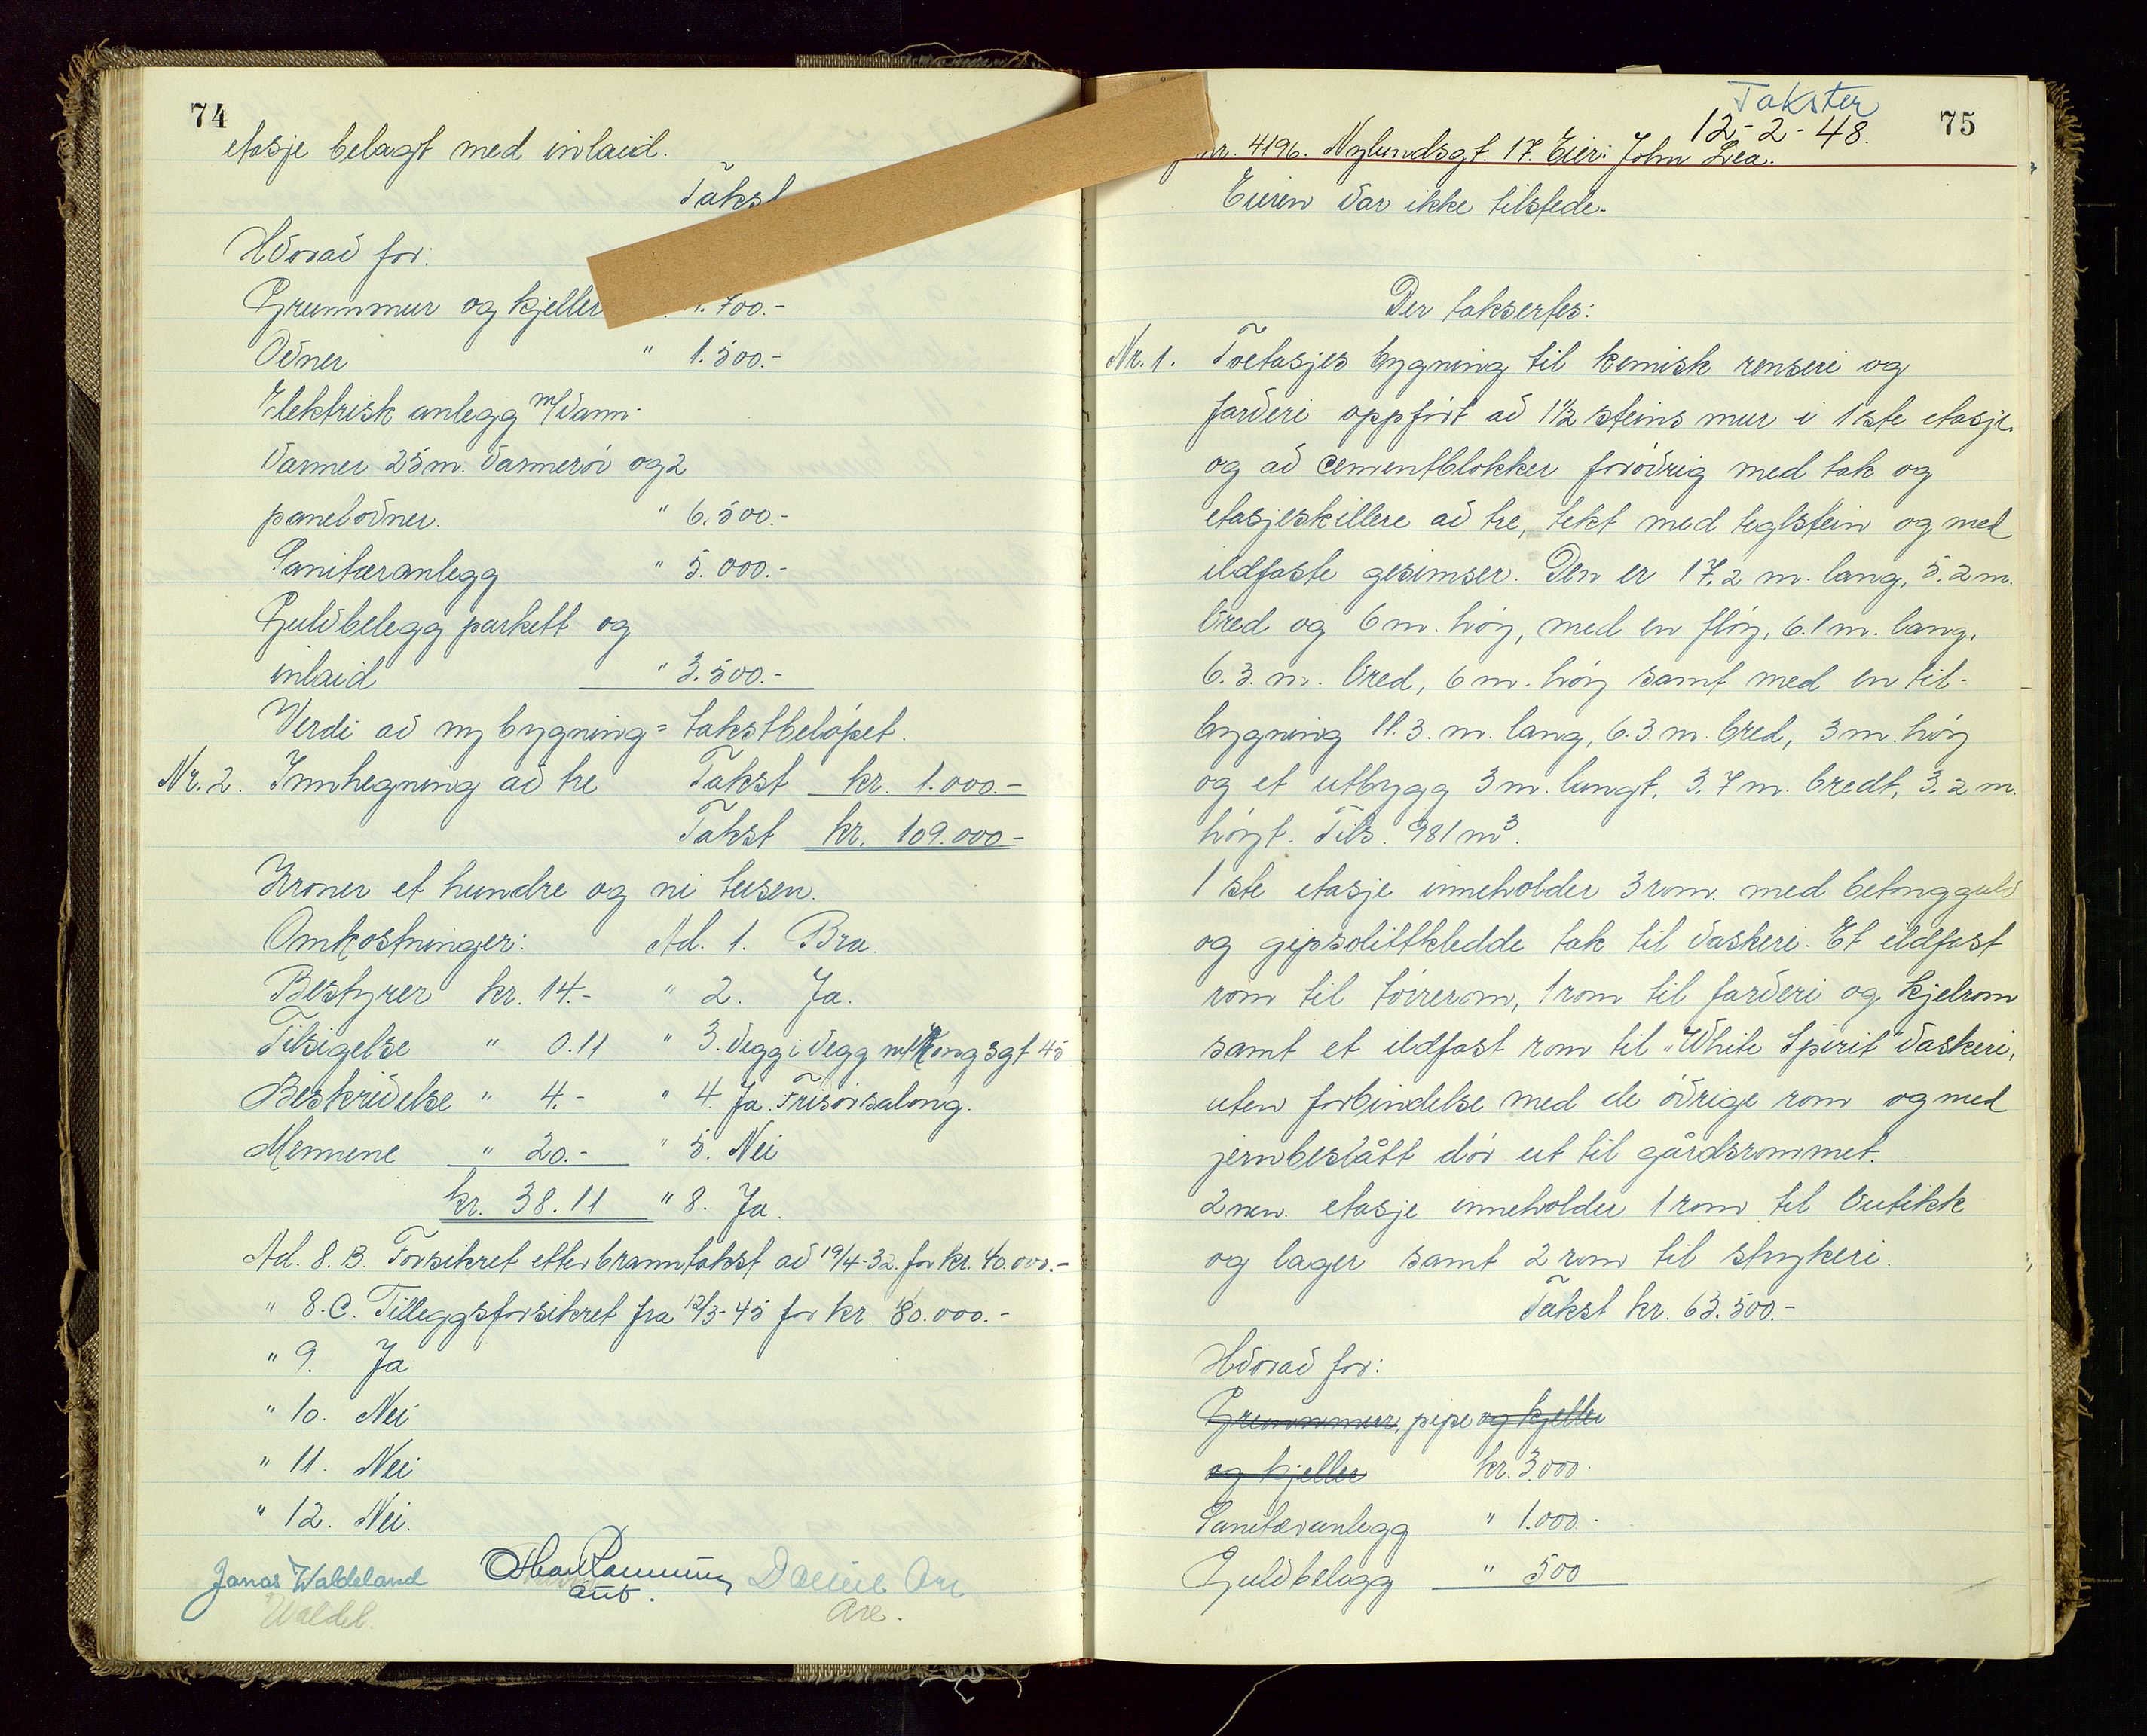 74
etasje belagt med inlaid.
Takst
Hvorav for:
Grunnmur og kjeller 700.-
Ovner " 1.500.-
Elektrisk anlegg m/vann-
varmer 25 m. varmerör og 2
panelovner. " 6.500.-
Sanitæranlegg " 5.000.-
Gulvbelegg parkett og
inlaid " 3.500.-
Verdi av ny bygning = takstbelöpet.
Nr. 2. Innhegning av tre Takst kr. 1.000.-
Takst kr. 109.000-
Kroner et hundre og ni tusen.
Omkostninger: Ad. 1. Bra.
Bestyrer kr. 14.- " 2. Ja.
Tilsigelse " 0.11 " 3. Vegg i vegg m/Kongsgt 45
Beskrivelse " 4.- " 4. Ja. Frisörsalong.
Mennene " 20.- " 5. Nei
kr. 38.11 " 8. Ja.
Ad. 8. B. Forsikret etter branntakst av 19/4-32. for kr. 40.000.-
" 8. C. Tilleggsforsikret fra 12/3-45 for kr. 80.000.-
" 9. Ja
" 10. Nei
" 11. Nei
" 12. Nei.
Jonas Waldeland
Waldel.
Are.
Takster
12-2-48. 75
nr. 4196. Nylundsgt. 17. Eier: John Lea.
Eieren var ikke tilstede.
Der taksertes:
Nr. 1. Toetasjes bygning til kemisk renseri og
farveri oppfört av 1 1/2 steins mur i 1ste etasje.
og av cementblokker forövrig med tak og
etasjeskillere av tre, tekt med teglstein og med
ildfaste gesimser. Den er 17.2 m. lang, 5.2 m.
bred og 6 m. höy, med en flöy, 6.1 m. lang,
6.3. m. bred, 6 m. höy samt med en til-
bygning 11.3. m. lang, 6.3 m. bred, 3 m. höy
og et utbygg 3 m. langt, 3.7 m. bredt, 3.2 m.
höyt. Tils. 981 m3.
1ste etasje inneholder 3 rom. med betonggulv
og gipsolittkledde tak til vaskeri. Et ildfast
rom til törrerom, 1 rom til farveri og kjelrom
samt et ildfast rom til "White Spirit" vaskeri,
uten forbindelse med de övrige rom og med
jernbeslått dör ut til gårdsrommet.
2nen. etasje inneholder 1 rom til butikk
og lager samt 2 rom til strykeri.
Takst kr. 63.500.-
Hvorav for:
Grunnmur, pipe og kjeller
og kjeller kr. 3.000.
Sanitæranlegg " 1.000.
Gulvbelegg " 500